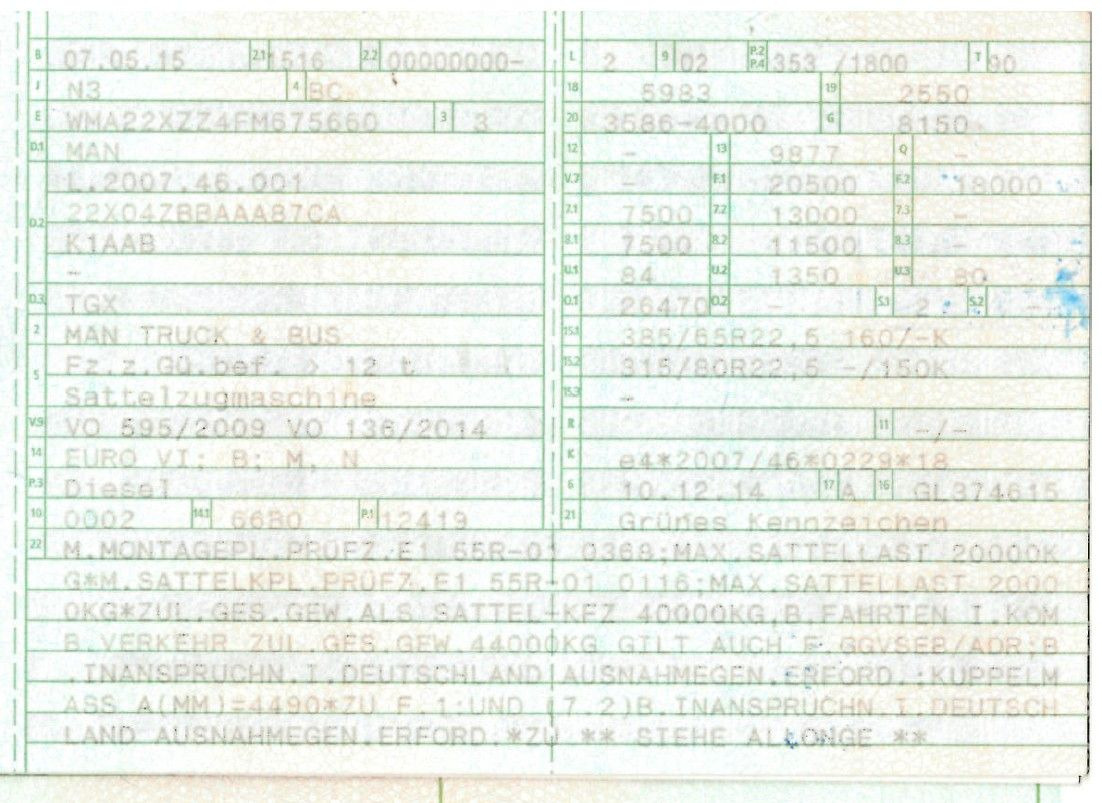 B 07.05.15 2.1 1516 2.2 00000000-
J N3 4 BC
E WMA22XZZ4FM675660 3 3
D.1 MAN
L.2007.46.001
D.2 22X04ZBBAAA87CA
K1AAB
-
D.3 TGX
2 MAN TRUCK & BUS
5 Fz.z.Gü.bef. > 12 t
Sattelzugmaschine
V.9 VO 595/2009 VO 136/2014
14 EURO VI; B; M, N
P.3 Diesel
10 0002 14.1 66B0 P.1 12419
L 2 9 02 P.2 P.4 353 /1800 T 90
18 5983 19 2550
20 3586-4000 G 8150
12 - 13 9877 Q -
V.7 - F.1 20500 F.2 18000
7.1 7500 7.2 13000 7.3 -
8.1 7500 8.2 11500 8.3 -
U.1 84 U.2 1350 U.3 80
O.1 26470 O.2 - S.1 2 S.2 -
15.1 385/65R22,5 160/-K
15.2 315/80R22,5 -/150K
15.3 -
R 11 -/-
K e4*2007/46*0229*18
6 10.12.14 17 A 16 GL374615
21 Grünes Kennzeichen
22 M.MONTAGEPL.PRÜFZ.E1 55R-01 0368;MAX.SATTELLAST 20000K
G*M.SATTELKPL.PRÜFZ.E1 55R-01 0116;MAX.SATTELLAST 2000
0KG*ZUL.GES.GEW.ALS SATTEL-KFZ 40000KG,B.FAHRTEN I.KOM
B.VERKEHR ZUL.GES.GEW.44000KG GILT AUCH F.GGVSEB/ADR;B
.INANSPRUCHN.I.DEUTSCHLAND AUSNAHMEGEN.ERFORD.;KUPPELM
ASS A(MM)=4490*ZU F.1:UND (7.2)B.INANSPRUCHN.I.DEUTSCH
LAND AUSNAHMEGEN.ERFORD.*ZU ** SIEHE ALLONGE **